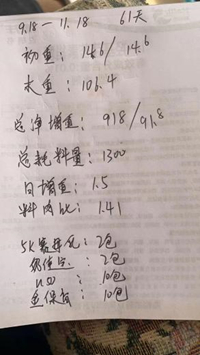 9.18 — 11.18 61天
初重: 14.6/14.6
末重: 106.4
总净增重: 918/91.8
总耗料量: 1300
日增重: 1.5
料肉比: 1.41
5K: 2包
: 2包
: 10包
: 10包